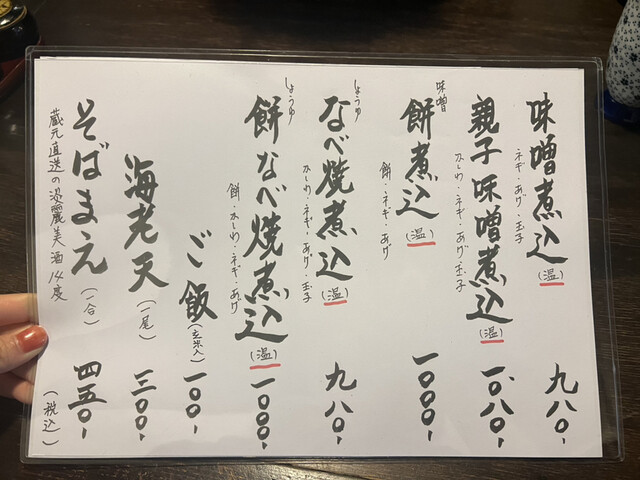 味噌煮込(温) 九八〇-
ネギ・あげ・玉子
親子味噌煮込(温) 一、〇八〇-
かしわ・ネギ・あげ・玉子
味噌
餅煮込(温) 一〇〇〇-
餅・ネギ・あげ
しょうゆ
なべ焼煮込(温) 九八〇-
かしわ・ネギ・あげ・玉子
しょうゆ
餅なべ焼煮込(温) 一〇〇〇-
餅・かしわ・ネギ・あげ
ご飯(玄米入) 一〇〇-
海老天(一尾) 三〇〇-
そばまえ(一合) 四五〇-
蔵元直送の淡麗美酒14度
(税込)